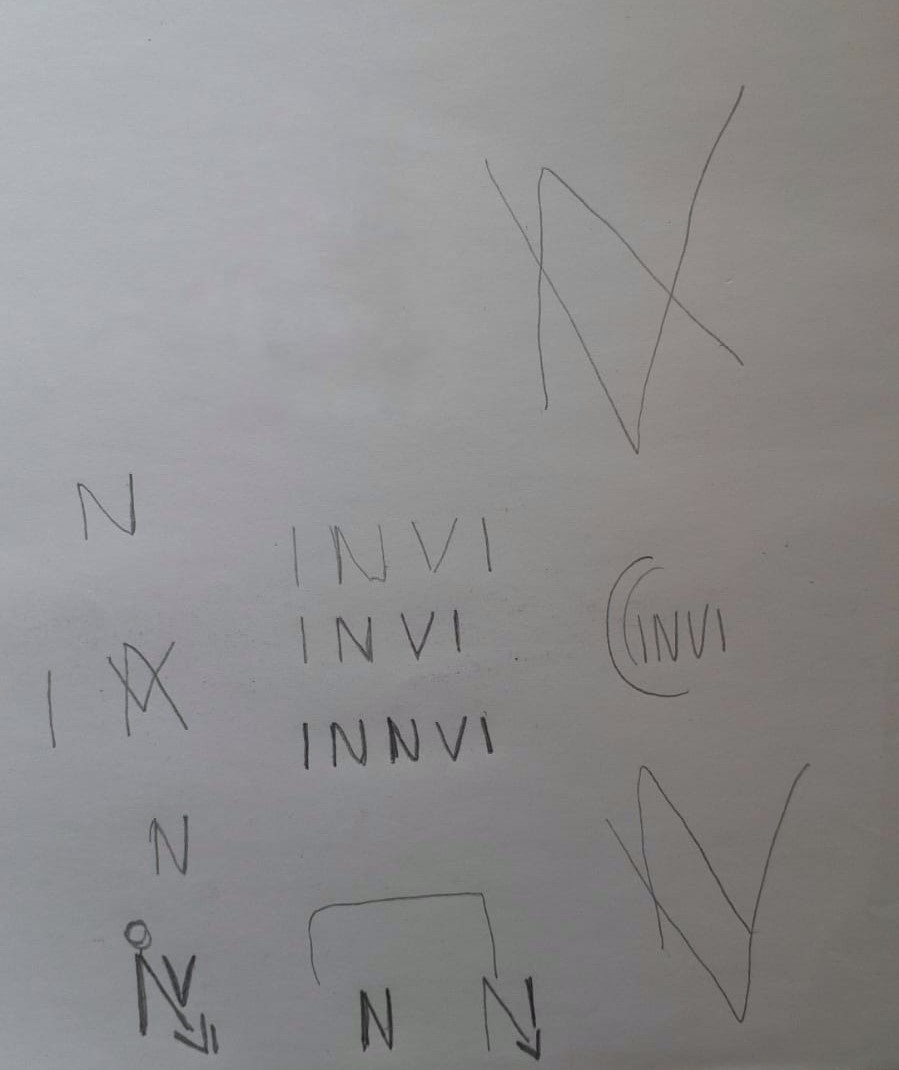 N
INVI
INVI
INVI
INNVI
N
N N